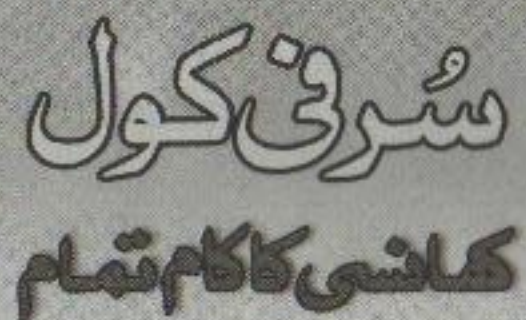 سُرفی کول
کھانسی کا کام تمام